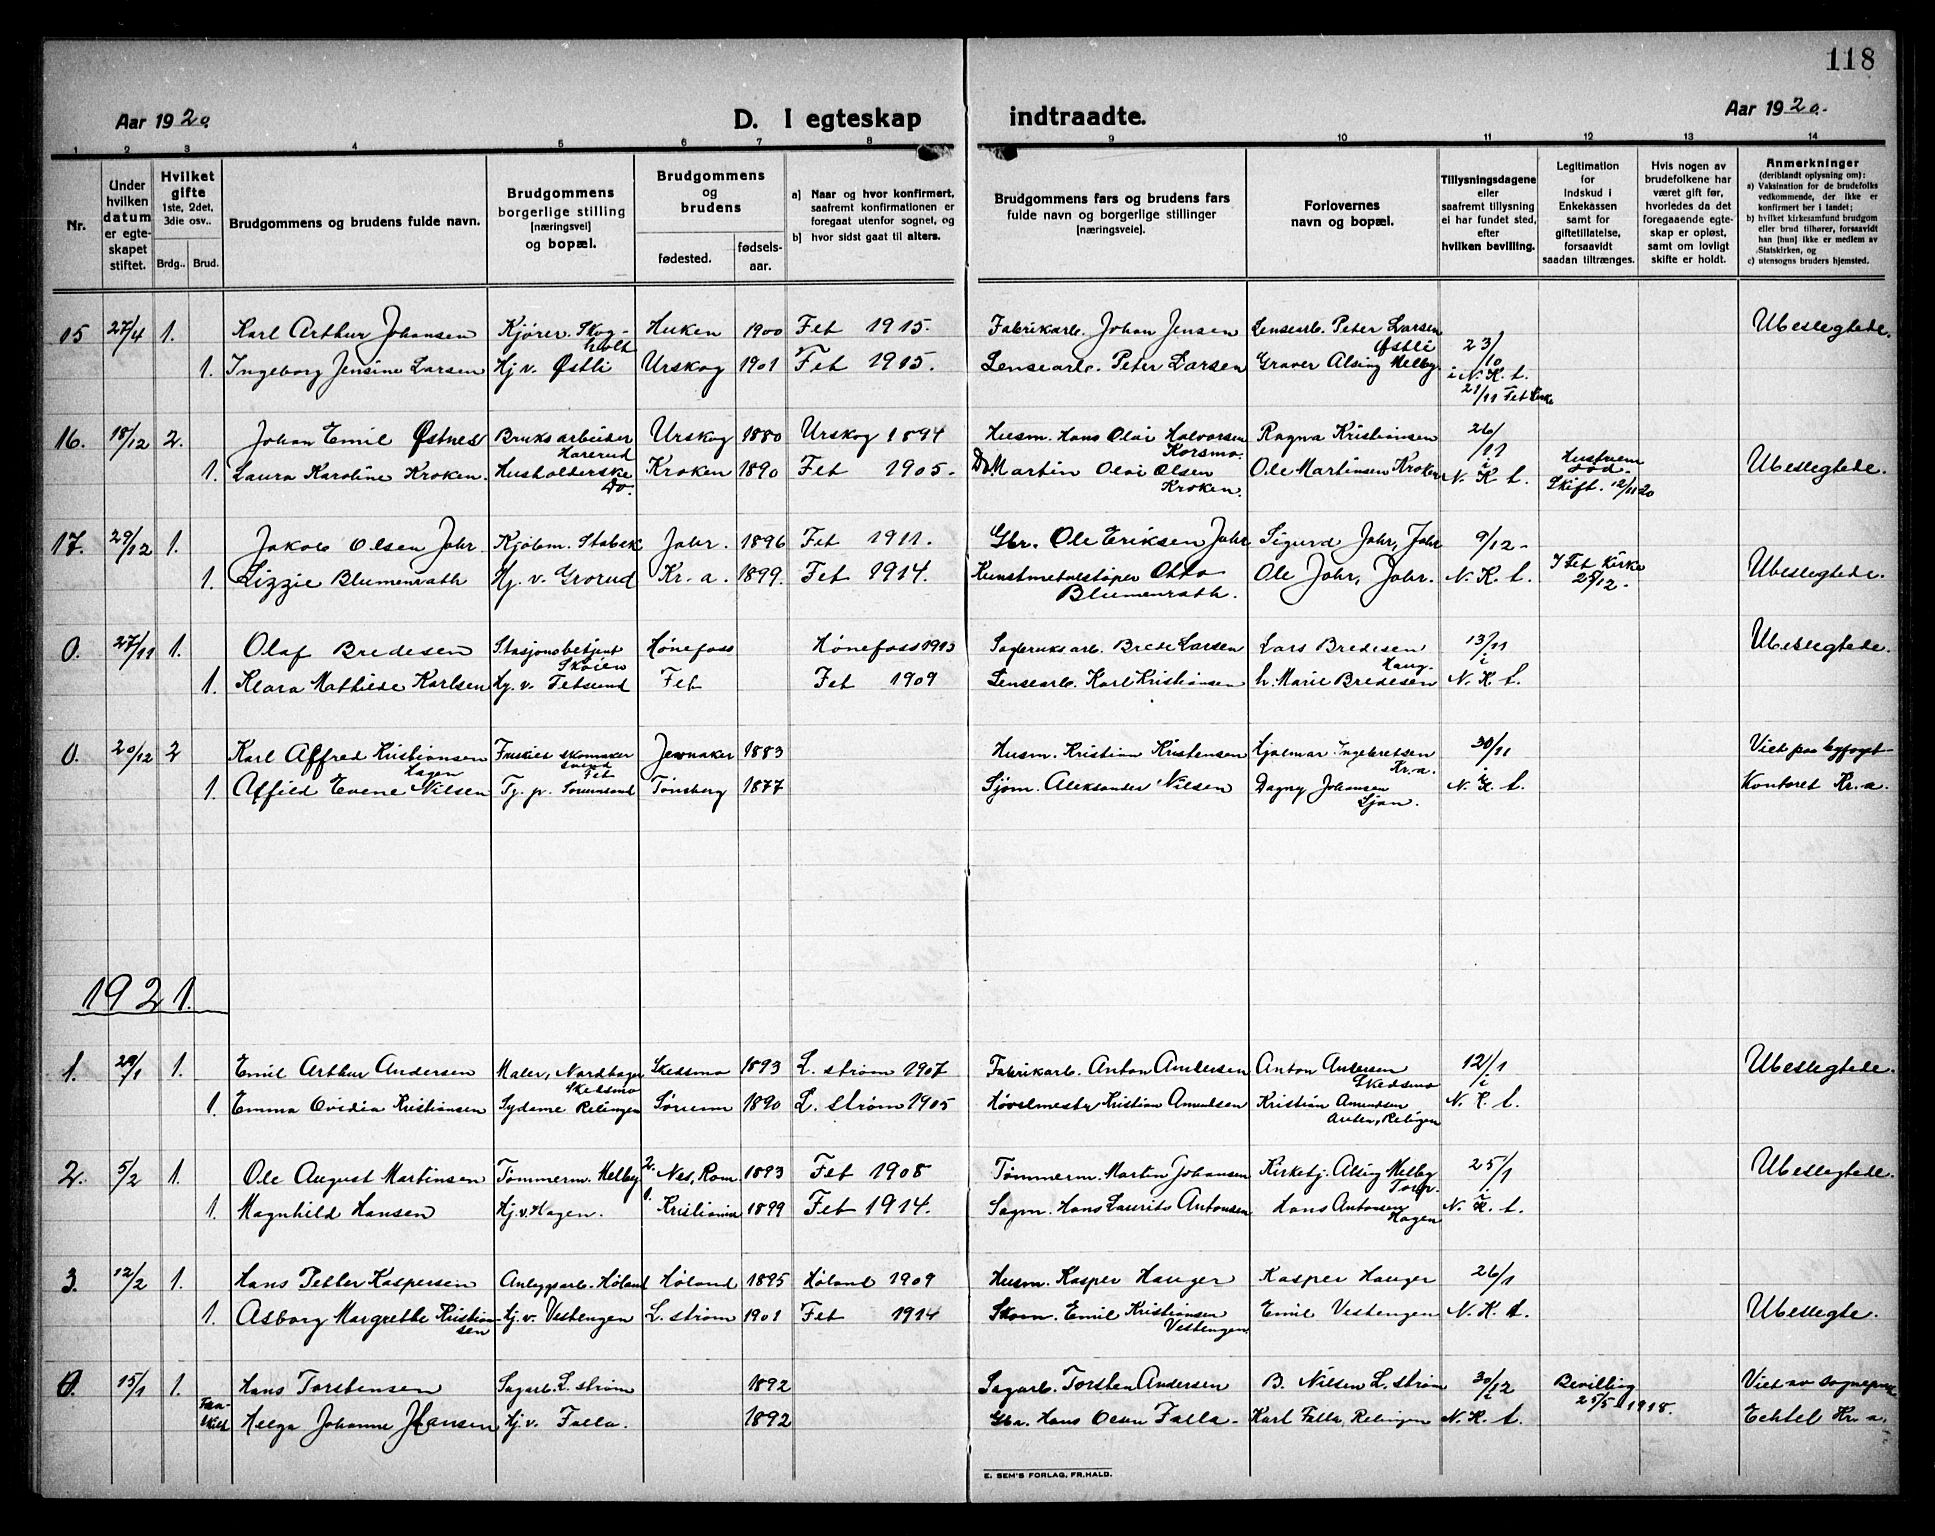 118
Aar 1920. D. I egteskap indtraadte. Aar 1920.
1 2 3 4 5 6 7 8 9 10 11 12 13 14
Nr.
Under hvilken datum er egteskapet stiftet.
Hvilket gifte 1ste, 2det, 3die osv..
Brdg.. Brud.
Brudgommens og brudens fulde navn.
Brudgommens borgerlige stilling [næringsvei] og bopæl.
Brudgommens og brudens
fødested. fødsels-aar.
a) Naar og hvor konfirmert, saafremt konfirmationen er foregaat utenfor sognet, og
b) hvor sidst gaat til alters.
Brudgommens fars og brudens fars fulde navn og borgerlige stillinger [næringsveie].
Forlovernes navn og bopæl.
Tillysningsdagene eller saafremt tillysning ei har fundet sted, efter hvilken bevilling.
Legitimation for Indskud i Enkekassen samt for giftetillatelse, forsaavidt saadan tiltrænges.
Hvis nogen av brudefolkene har været gift før, hvorledes da det foregaaende egteskap er opløst, samt om lovligt skifte er holdt.
Anmerkninger (deriblandt oplysning om):
a) Vaksination for de brudefolks vedkommende, der ikke er konfirmert her i landet;
b) hvilket kirkesamfund brudgom eller brud tilhører, forsaavidt han [hun] ikke er medlem av Statskirken, og
c) utensogns bruders hjemsted.
15 27/4 1. Karl Arthur Johansen Kjører. Skogholt Huken 1900 Fet 1915. Fabrikarb. Johan Jensen Lensearb. Peter Larsen Østli 23/10 Ubeslegtede.
1. Ingeborg Jensine Larsen Hj. v. Østli Urskog 1901 Fet 1915. Lensearb. Peter Larsen Graver Alsing Melby i N. K. t. 21/11 Fet Kirke
16. 18/12 2. Johan Emil Østnes Bruksarbeider Harerud Urskog 1880 Urskog 1894 Husm. Hans Olai Halvorsen Korsmo Ragna Kristiansen 26/11 i
1. Laura Karoline Kroken. Husholderske Do. Kroken 1890 Fet 1905. Do Martin Olai Olsen Kroken. Ole Martinsen Kroken N. K. t. Hustruen død. Skift. 12/11 20 Ubeslegtede.
17. 29/12 1. Jakob Olsen Jahr. Kjøbm. Stabek Jahr. 1896 Fet 1911. Gbr. Ole Eriksen Jahr Sigurd Jahr, Jahr 9/12 -
1. Lizzie Blumenrath Hj. v. Grorud Kr. a. 1899. Fet 1914. Kunstmetalstøper Otto Blumenrath. Ole Jahr, Jahr. N. K. t. I Fet Kirke 25/12 - Ubeslegtede.
0. 27/11 1. Olaf Bredesen Stasjonsbetjent Skøien Hønefoss Hønefoss 1913 Sagbruksarb. Brede Larsen Lars Bredesen Haug. 13/11 i Ubeslegtede.
1. Klara Mathilde Karlsen Hj. v. Fetsund Fet Fet 1909 Lensearb. Karl Kristiansen h. Marie Bredesen N. K. t.
0. 20/12 2 Karl Alfred Kristiansen Hagen skomaker Fet Jevnaker 1883 Husm. Kristian Kristensen Hjalmar Ingebretsen Kr. a. 30/11 i Viet paa byfoget-
1. Alfild Evene Nilsen Tj. p. Tønsberg 1877 Sjøm. Aleksander Nilsen Dagny Johansen Ljan. N. K. t. Kontoret Kr. a.
1921.
1. 29/1 1. Emil Arthur Andersen Maler, Nordhagen Skedsmo Skedsmo 1893 L. strøm 1907 Fabrikarb. Anton Andersen Anton Andersen Skedsmo 12/1 i Ubeslegtede.
1. Emma Ovidia Kristiansen Sydame Relingen Sørum 1890 L. strøm 1905 Høvelmestr Kristian Amundsen Kristian Amundsen Relingen N. K. t.
2. 5/2 1. Ole August Martinsen Tømmerm. Melby 2. Nes, Rom. 1893 Fet 1908 Tømmerm. Martin Johansen Kirketj. Alsing Melby Torp. 25/1 i Ubeslegtede.
1. Magnhild Hansen Hj. v. Hagen. 1. Kristiania 1899 Fet 1914. Sagm. Hans Laurits Antonsen Hans Antonsen Hagen N. K. t.
3. 12/2 1. Hans Petter Kaspersen Anlegsarb. Høland Høland 1895 Høland 1909 Husm. Kasper Hauger Kasper Hauger 26/1
1. Asborg Margrethe Kristiansen Hj. v. Vestengen L. strøm 1901 Fet 1914 Skom. Emil Kristiansen Vestengen Emil Vestengen N. K. t. Ubeslegte.
0. 15/1 1. Hans Torstensen Sagarb. L. strøm 1892 Sagarb. Torsten Andersen B. Nilsen L. strøm 30/12 i Bevilling 25/5 1918. Viet av sognepr.
Fraskilt Helga Johanne Hansen Hj. v. Falla. 1892 Gba. Hans Olsen Falla - Karl Falla, Relingen N. K. t. Echtel Kr. a.
E. SEM'S FORLAG, FR.HALD.